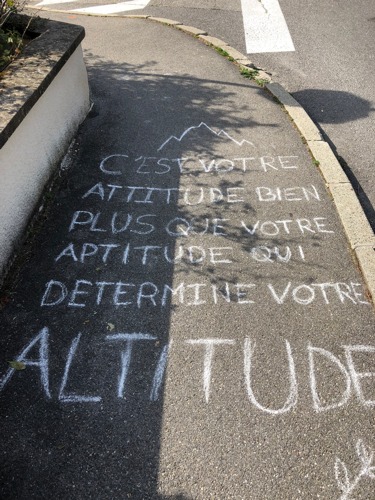 C'EST VOTRE
ATTITUDE BIEN
PLUS QUE VOTRE
APTITUDE QUI
DETERMINE VOTRE
ALTITUDE